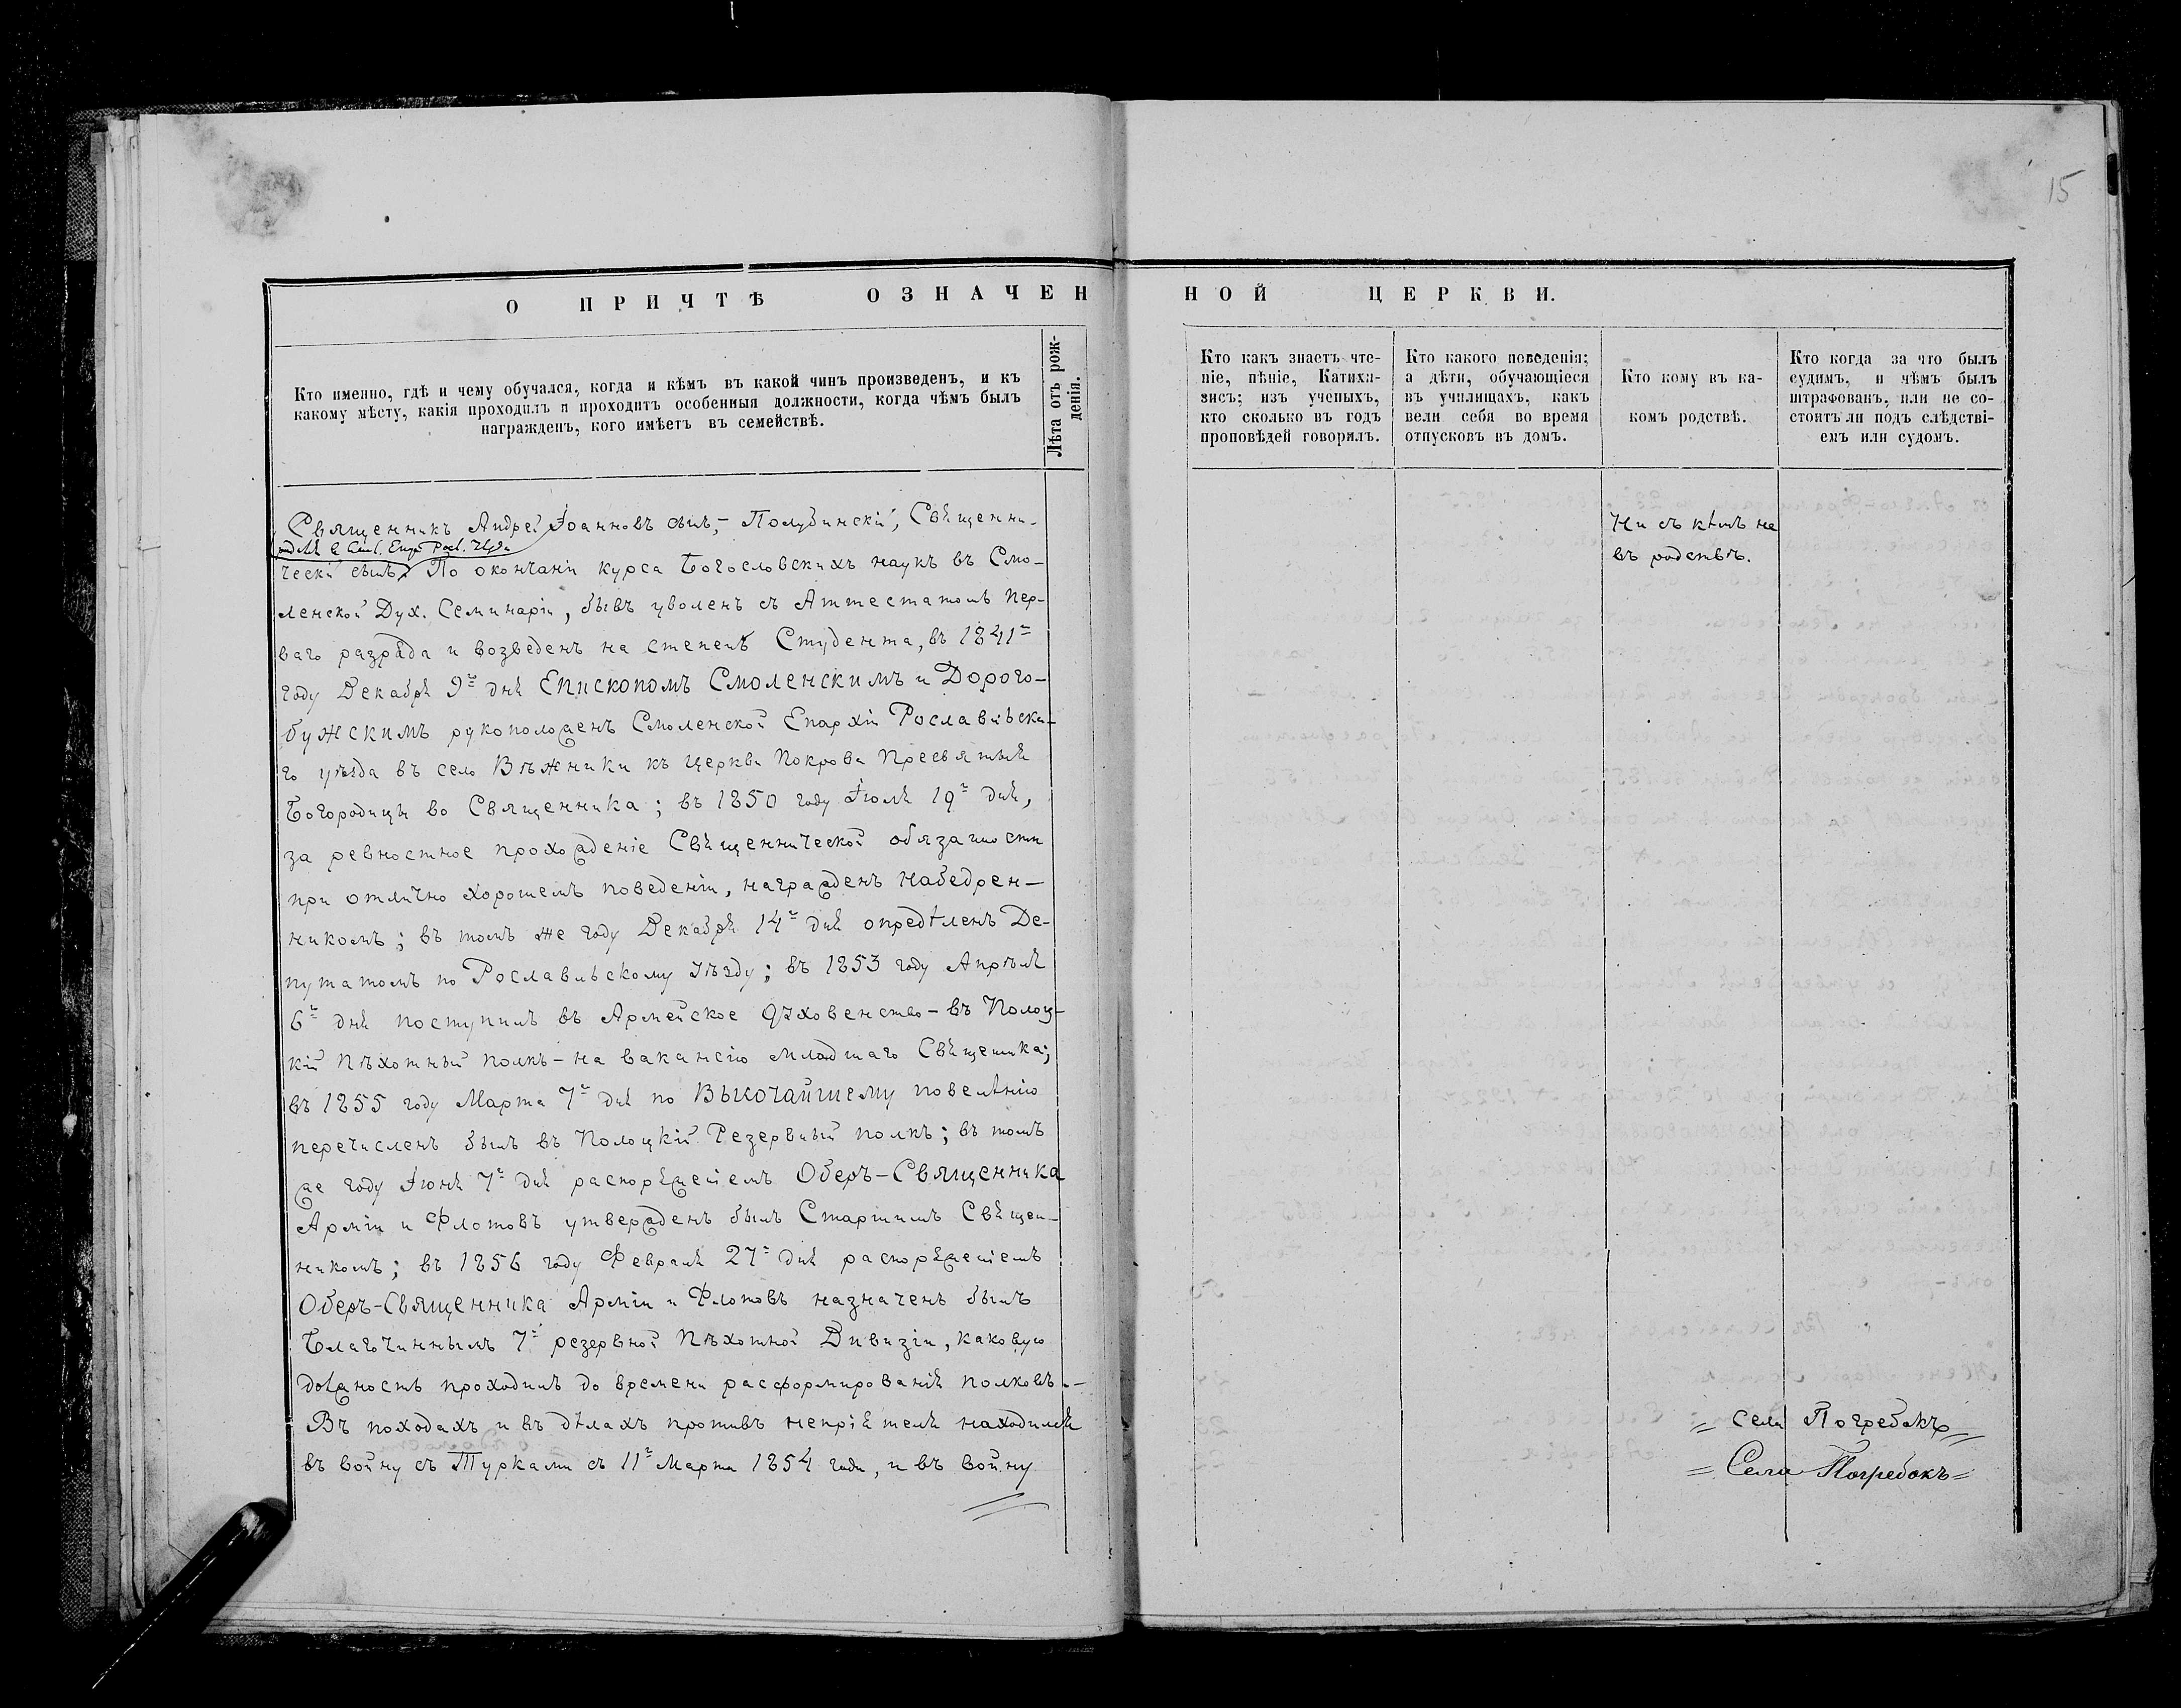 15
О ПРИЧТѢ ОЗНАЧЕННОЙ ЦЕРКВИ.
Кто именно, гдѣ и чему обучался, когда и кѣмъ въ какой чинъ произведенъ, и къ
какому мѣсту, какія проходилъ и проходитъ особенныя должности, когда чѣмъ былъ
награжденъ, кого имѣетъ въ семействѣ.
Лѣта отъ рож-
денія.
Кто какъ знаетъ чте-
ніе, пѣніе, Катихи-
зисъ; изъ ученыхъ,
кто сколько въ годъ
проповѣдей говорилъ.
Кто какого поведенія;
а дѣти, обучающіеся
въ училищахъ, какъ
вели себя во время
отпусковъ въ домъ.
Кто кому въ ка-
комъ родствѣ.
Кто когда за что былъ
судимъ, и чѣмъ былъ
штрафованъ, или не со-
стоитъ ли подъ слѣдствi-
емъ или судомъ.
Священникъ Андрей Іоанновъ сынъ, – Полубинскій, Священни-
ческій сынъ. По окончаніи курса Богословскихъ наукъ въ Смо-
ленской Дух. Семинаріи, бывъ уволенъ съ Аттестатомъ пер-
ваго разряда и возведенъ на степень Студента, въ 1841.
году Декабря 9. дня Епископомъ Смоленскимъ и Дорого-
бужскимъ рукоположенъ Смоленской Епархіи Рославльска-
го уѣзда въ село Вѣжники къ церкви Покрова Пресвятыя
Богородицы во Священника; въ 1850 году Іюля 19. дня,
за ревностное прохожденіе Священнической обязанности
при отлично хорошемъ поведеніи, награжденъ Набедрен-
никомъ; въ томъ же году Декабря 14. дня опредѣленъ Де-
путатомъ по Рославльскому уѣзду; въ 1853 году Апрѣля
6. дня поступилъ въ Армейское духовенство – въ Полоц-
кій пѣхотный полкъ – на вакансію младшаго Священника;
въ 1855 году Марта 7. дня по Высочайшему повелѣнію
перечисленъ былъ въ Полоцкій Резервный полкъ; въ томъ
же году Іюня 7. дня распоряженіемъ Оберъ-Священника
Арміи и Флотовъ утвержденъ былъ Старшимъ Священ-
никомъ; въ 1856 году Февраля 27. дня распоряженіемъ
Оберъ-Священника Арміи и Флотовъ назначенъ былъ
Благочиннымъ 7. резервной Пѣхотной Дивизіи, каковую
должность проходилъ до времени расформированія полковъ. –
Въ походахъ и въ дѣлахъ противъ непріятеля находился
въ войну съ Турками съ 11. Марта 1854 года, и въ войну
Ни съ кѣмъ не
въ родствѣ.
= села Погребокъ =
= Села Погребокъ =